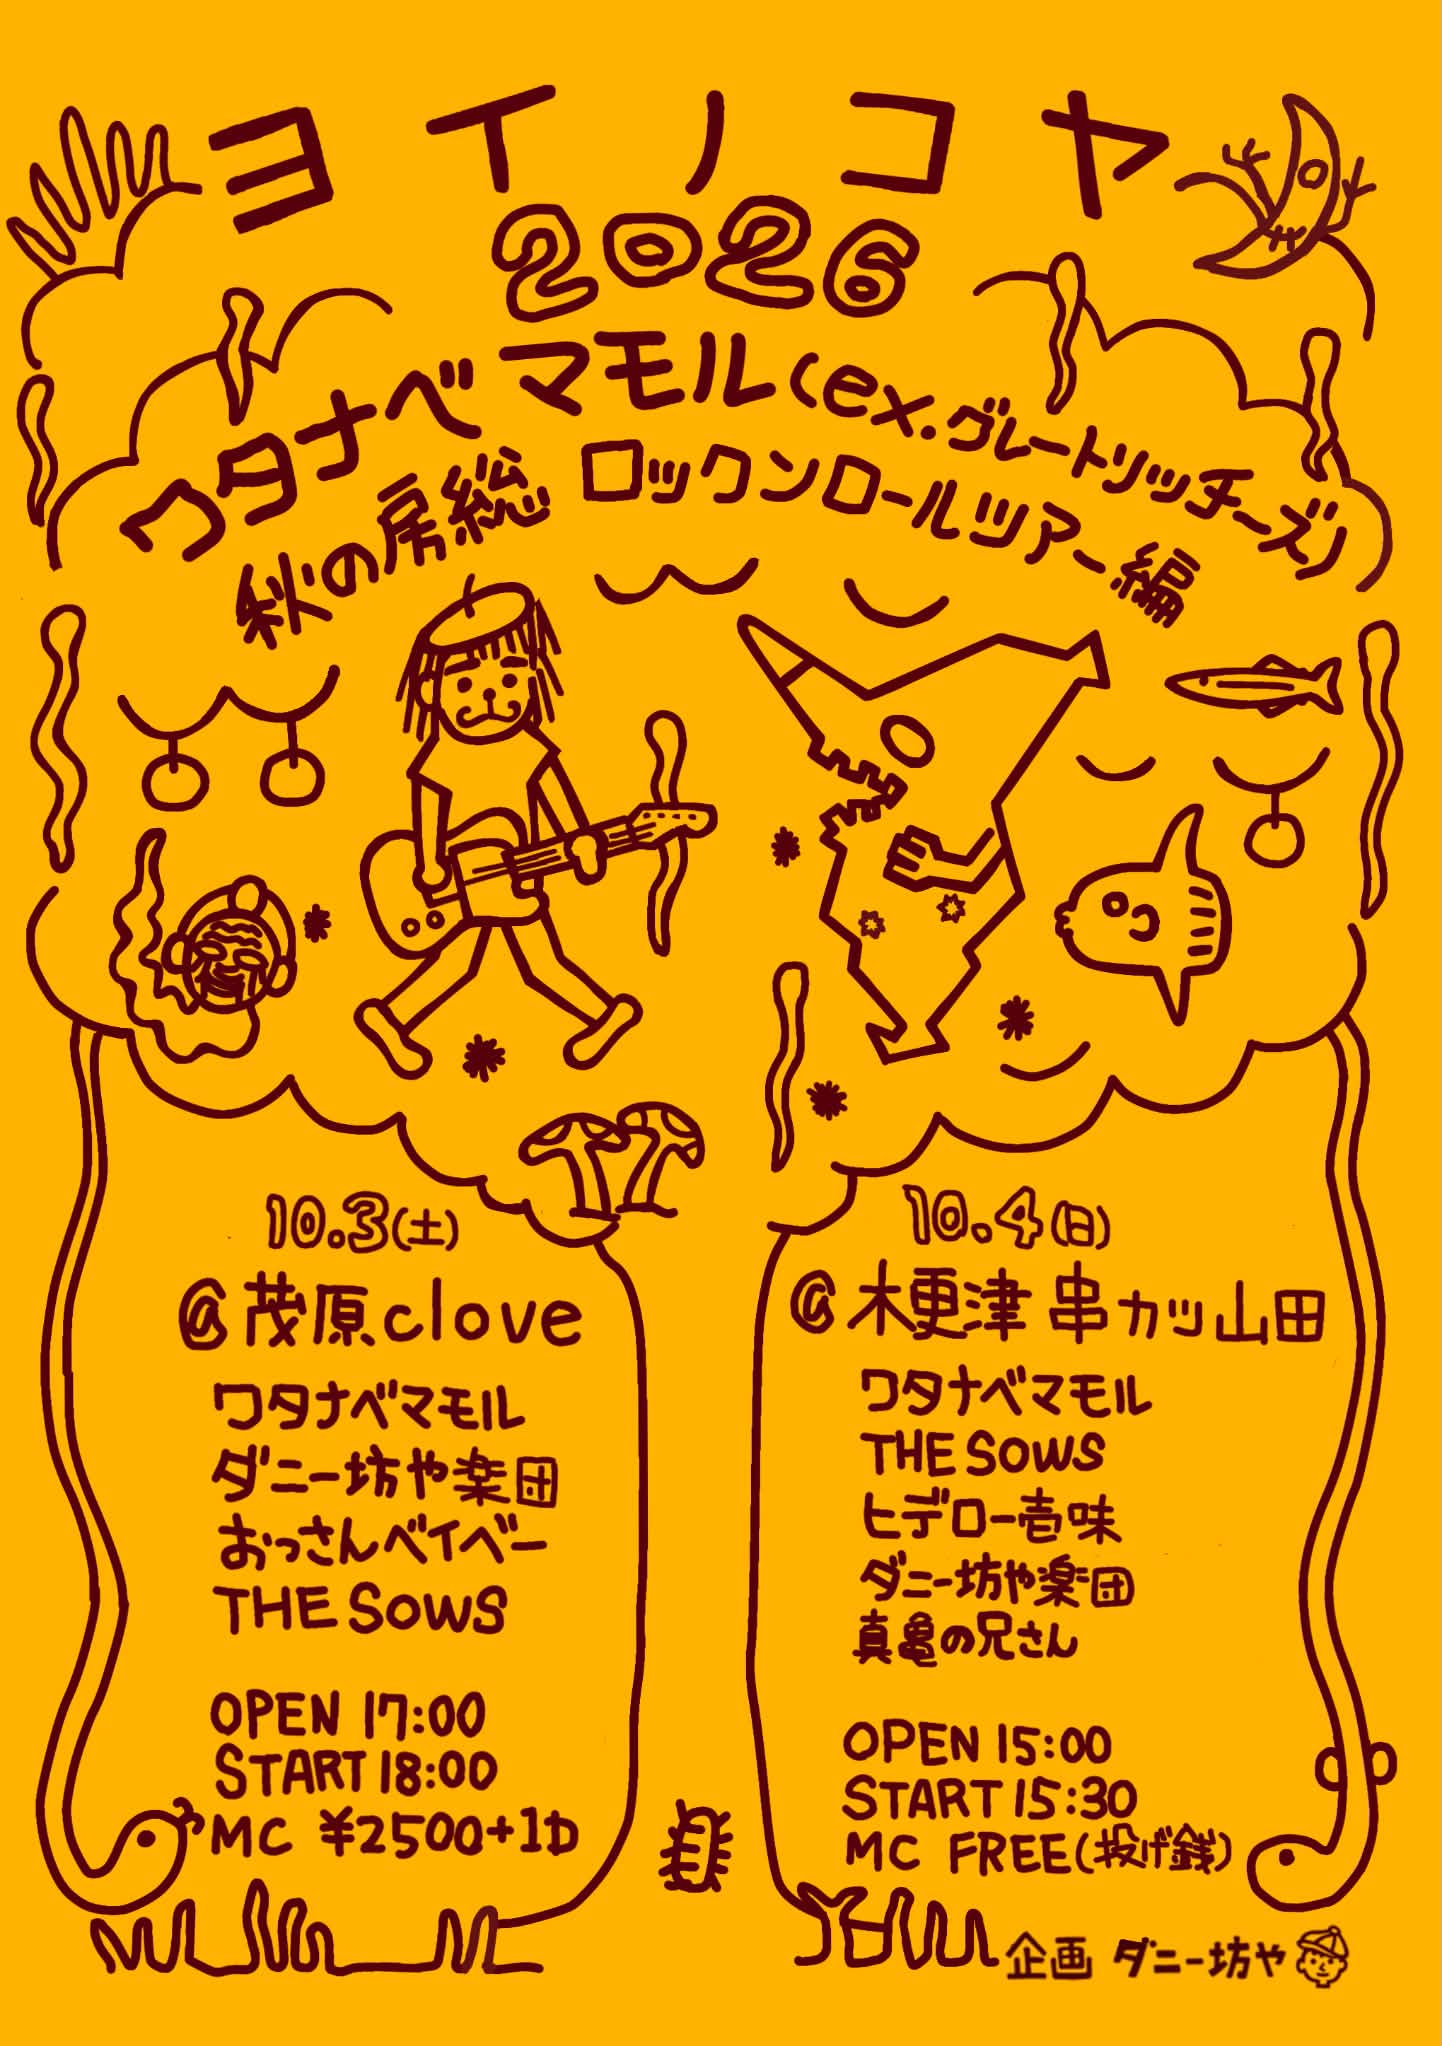 ヨイノコヤ
2026
ワタナベマモル(ex.グレートリッチーズ)
秋の房総 ロックンロールツアー編
10.3(土)
@茂原clove
ワタナベマモル
ダニー坊や楽団
おっさんベイベー
THE SOWS
OPEN 17:00
START 18:00
MC ¥2500+1D
10.4(日)
@木更津 串カツ山田
ワタナベマモル
THE SOWS
ヒデロー壱味
ダニー坊や楽団
真亀の兄さん
OPEN 15:00
START 15:30
MC FREE(投げ銭)
企画 ダニー坊や